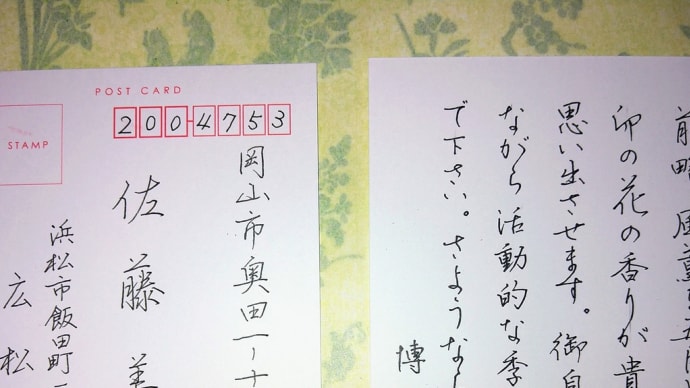 POST CARD
200-4753
STAMP
岡山市奥田一ー十
佐藤美
浜松市飯田町
広松
前略 風薫
卯の花の香りが貴
思い出させます。御自
ながら活動的な季
で下さい。さようなら
博